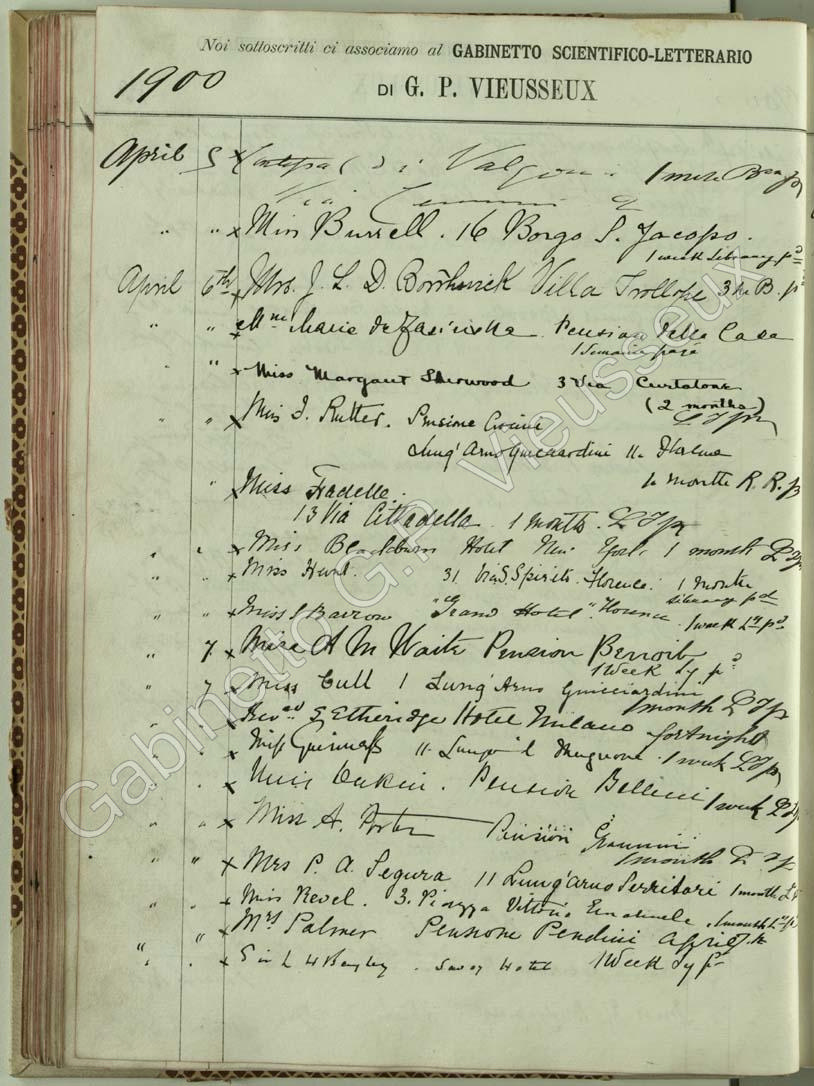 Noi sottoscritti ci associamo al GABINETTO SCIENTIFICO-LETTERARIO
1900
DI G. P. VIEUSSEUX
April 5 x Contessa
" " x Miss Burrell. 16 Borgo S. Jacopo.
1 week Library pd
April 6th x Mrs. J. L. D. Borthwick Villa Trollope 3 m B. pd
" " Marie de Pension della Casa
1 semaine payé
" x Miss Margaret Sherwood 3 Via Curtatone
(2 months)
" " x Miss J. Rutter. Pensione
Lung' Arno Guicciardini 11. Florence
1 month R. R. p
" x Miss Fradelle.
13 Via Cittadella. 1 month. L T p
" " x Miss Blackburn Hotel New York. 1 month
" " x Miss Hunt. 31 Via S. Spirito. Florence. 1 month
Library pd
" " x Miss J Barrow "Grand Hotel". Florence. 1 week Ly pd
" 7. x Miss A M Waite Pension Benoit
1 Week Ly pd
" 7 x Miss Cull 1 Lung' Arno Guicciardini
1 month L T p
" " x Revd Etheridge Hotel Milano fortnight
" " x Miss Guinness 11 Mugnone. 1 week L T p
" " x Miss Pension Bellini 1 week
" " x Miss A. Porter Pension
1 month
" " x Mrs P. A. Segura 11 Lung' Arno Serristori 1 month
" " x Miss Revel. 3. Piazza Vittorio Emanuele. 1 month Ly pd
" " x Mrs Palmer Pensione Pendini
" " x H Bayley. Savoy Hotel 1 Week Ly pd
Gabinetto G.P. Vieusseux